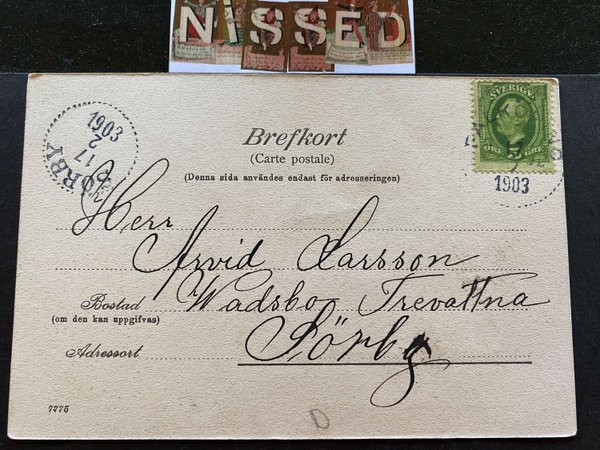 NiSSED
Brefkort
(Carte postale)
(Denna sida användes endast för adresseringen)
SVERIGE
5
ÖRE
1903
1903
2
17
SÖRBY
Herr
Arvid Larsson
Bostad
(om den kan uppgifvas)
Wadsbo Trevattna
Adressort
Sörby
7775
D